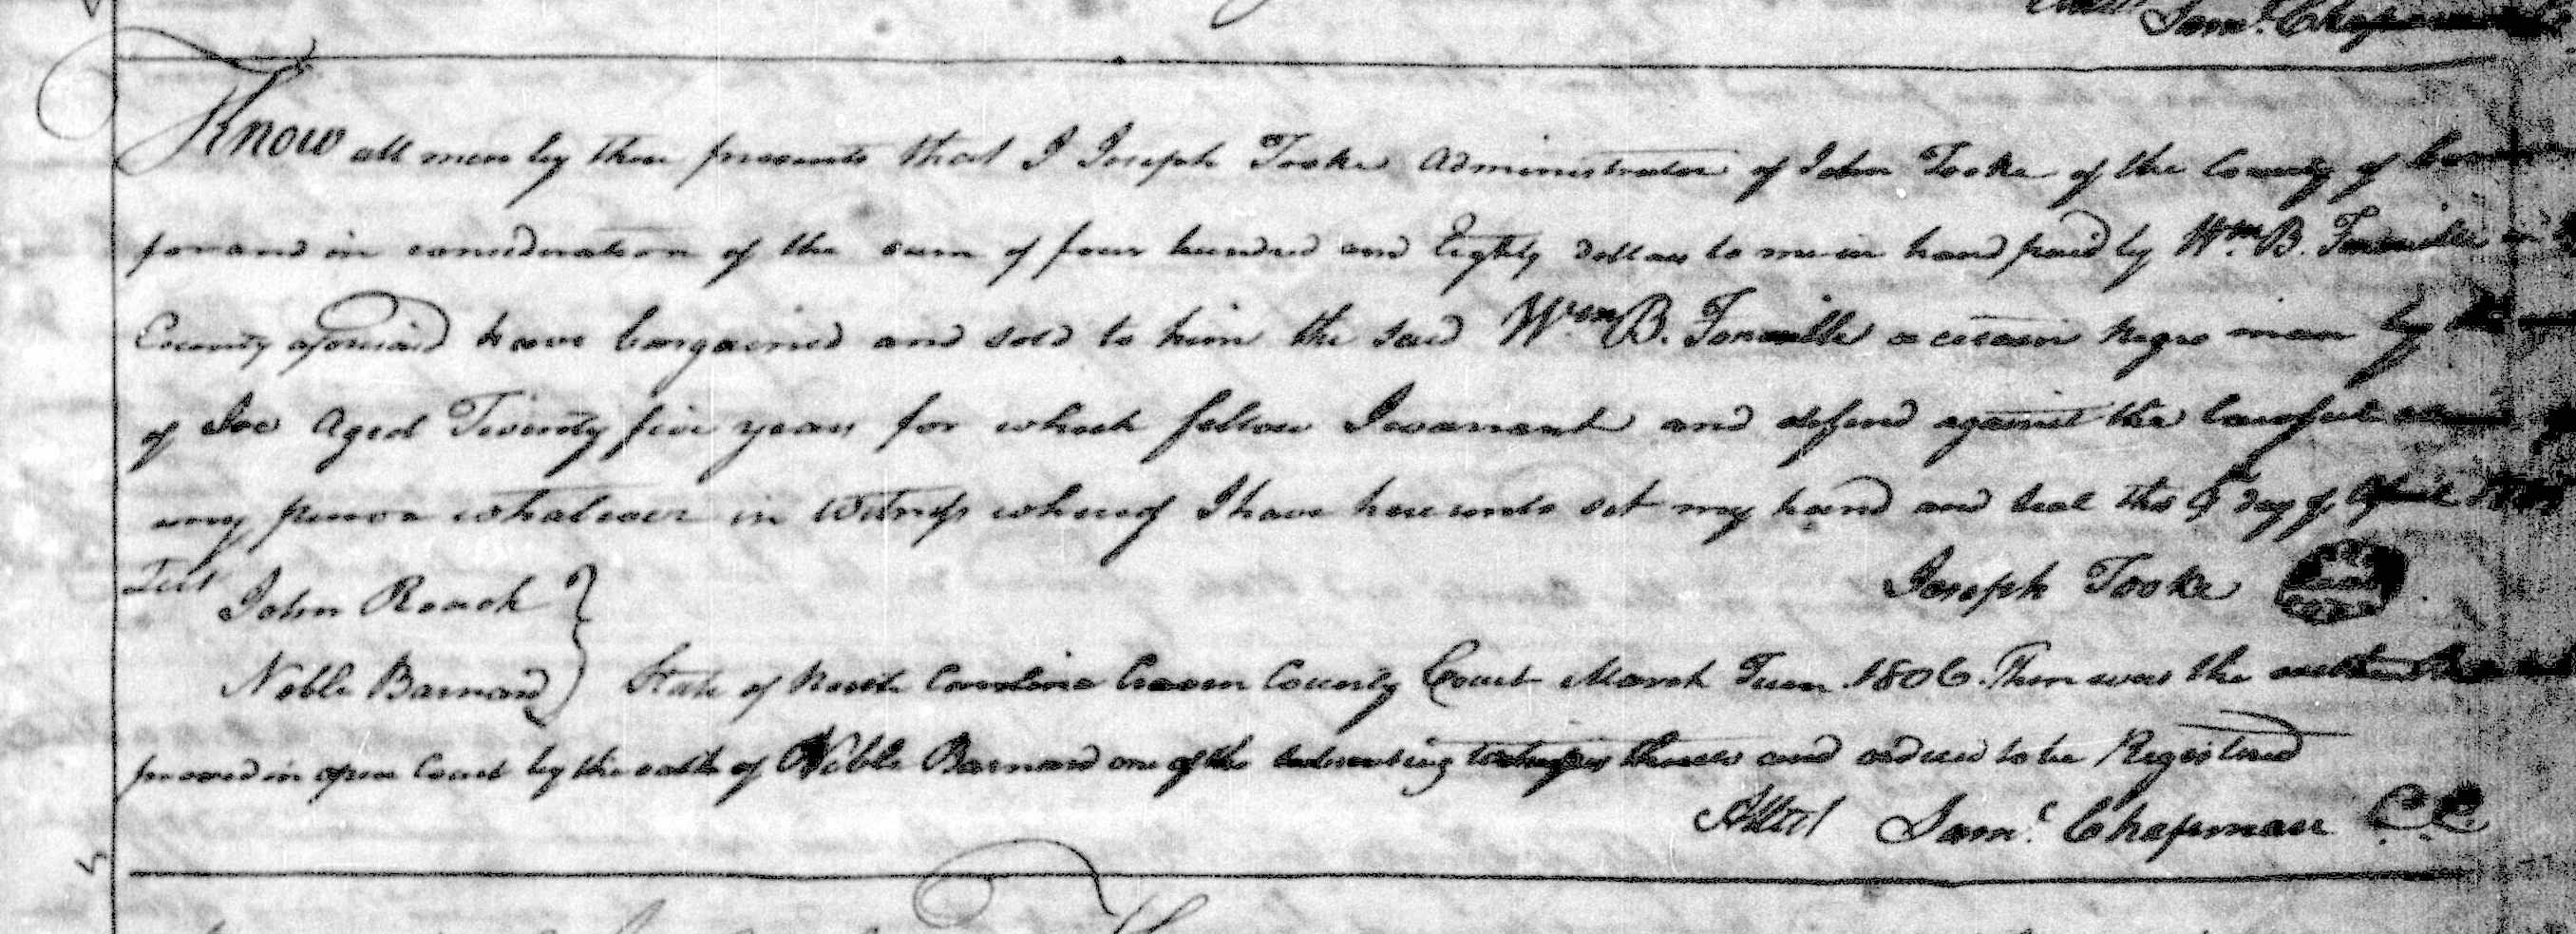 Sam.l
Know all men by these presents that I Joseph Tooke Administrator of John Tooke of the County of
for and in consideration of the sum of four hundred and Eighty dollars to me in hand paid by Wm. B.
County aforesaid have bargained and sold to him the said Wm B. Fonville a certain Negro man by
of Joe Aged Twenty five years for which fellow I warrant and defend against the lawful
any person whatever in Witness whereof I have hereunto set my hand and seal this day of April
Test John Roach
Joseph Tooke
Noble Barnard State of North Carolina Craven County Court March Term 1806. Then was the
proved in open Court by the oath of Noble Barnard one of the subscribing thereto and ordered to be Registered
Attest Sam.l Chapman C.C.